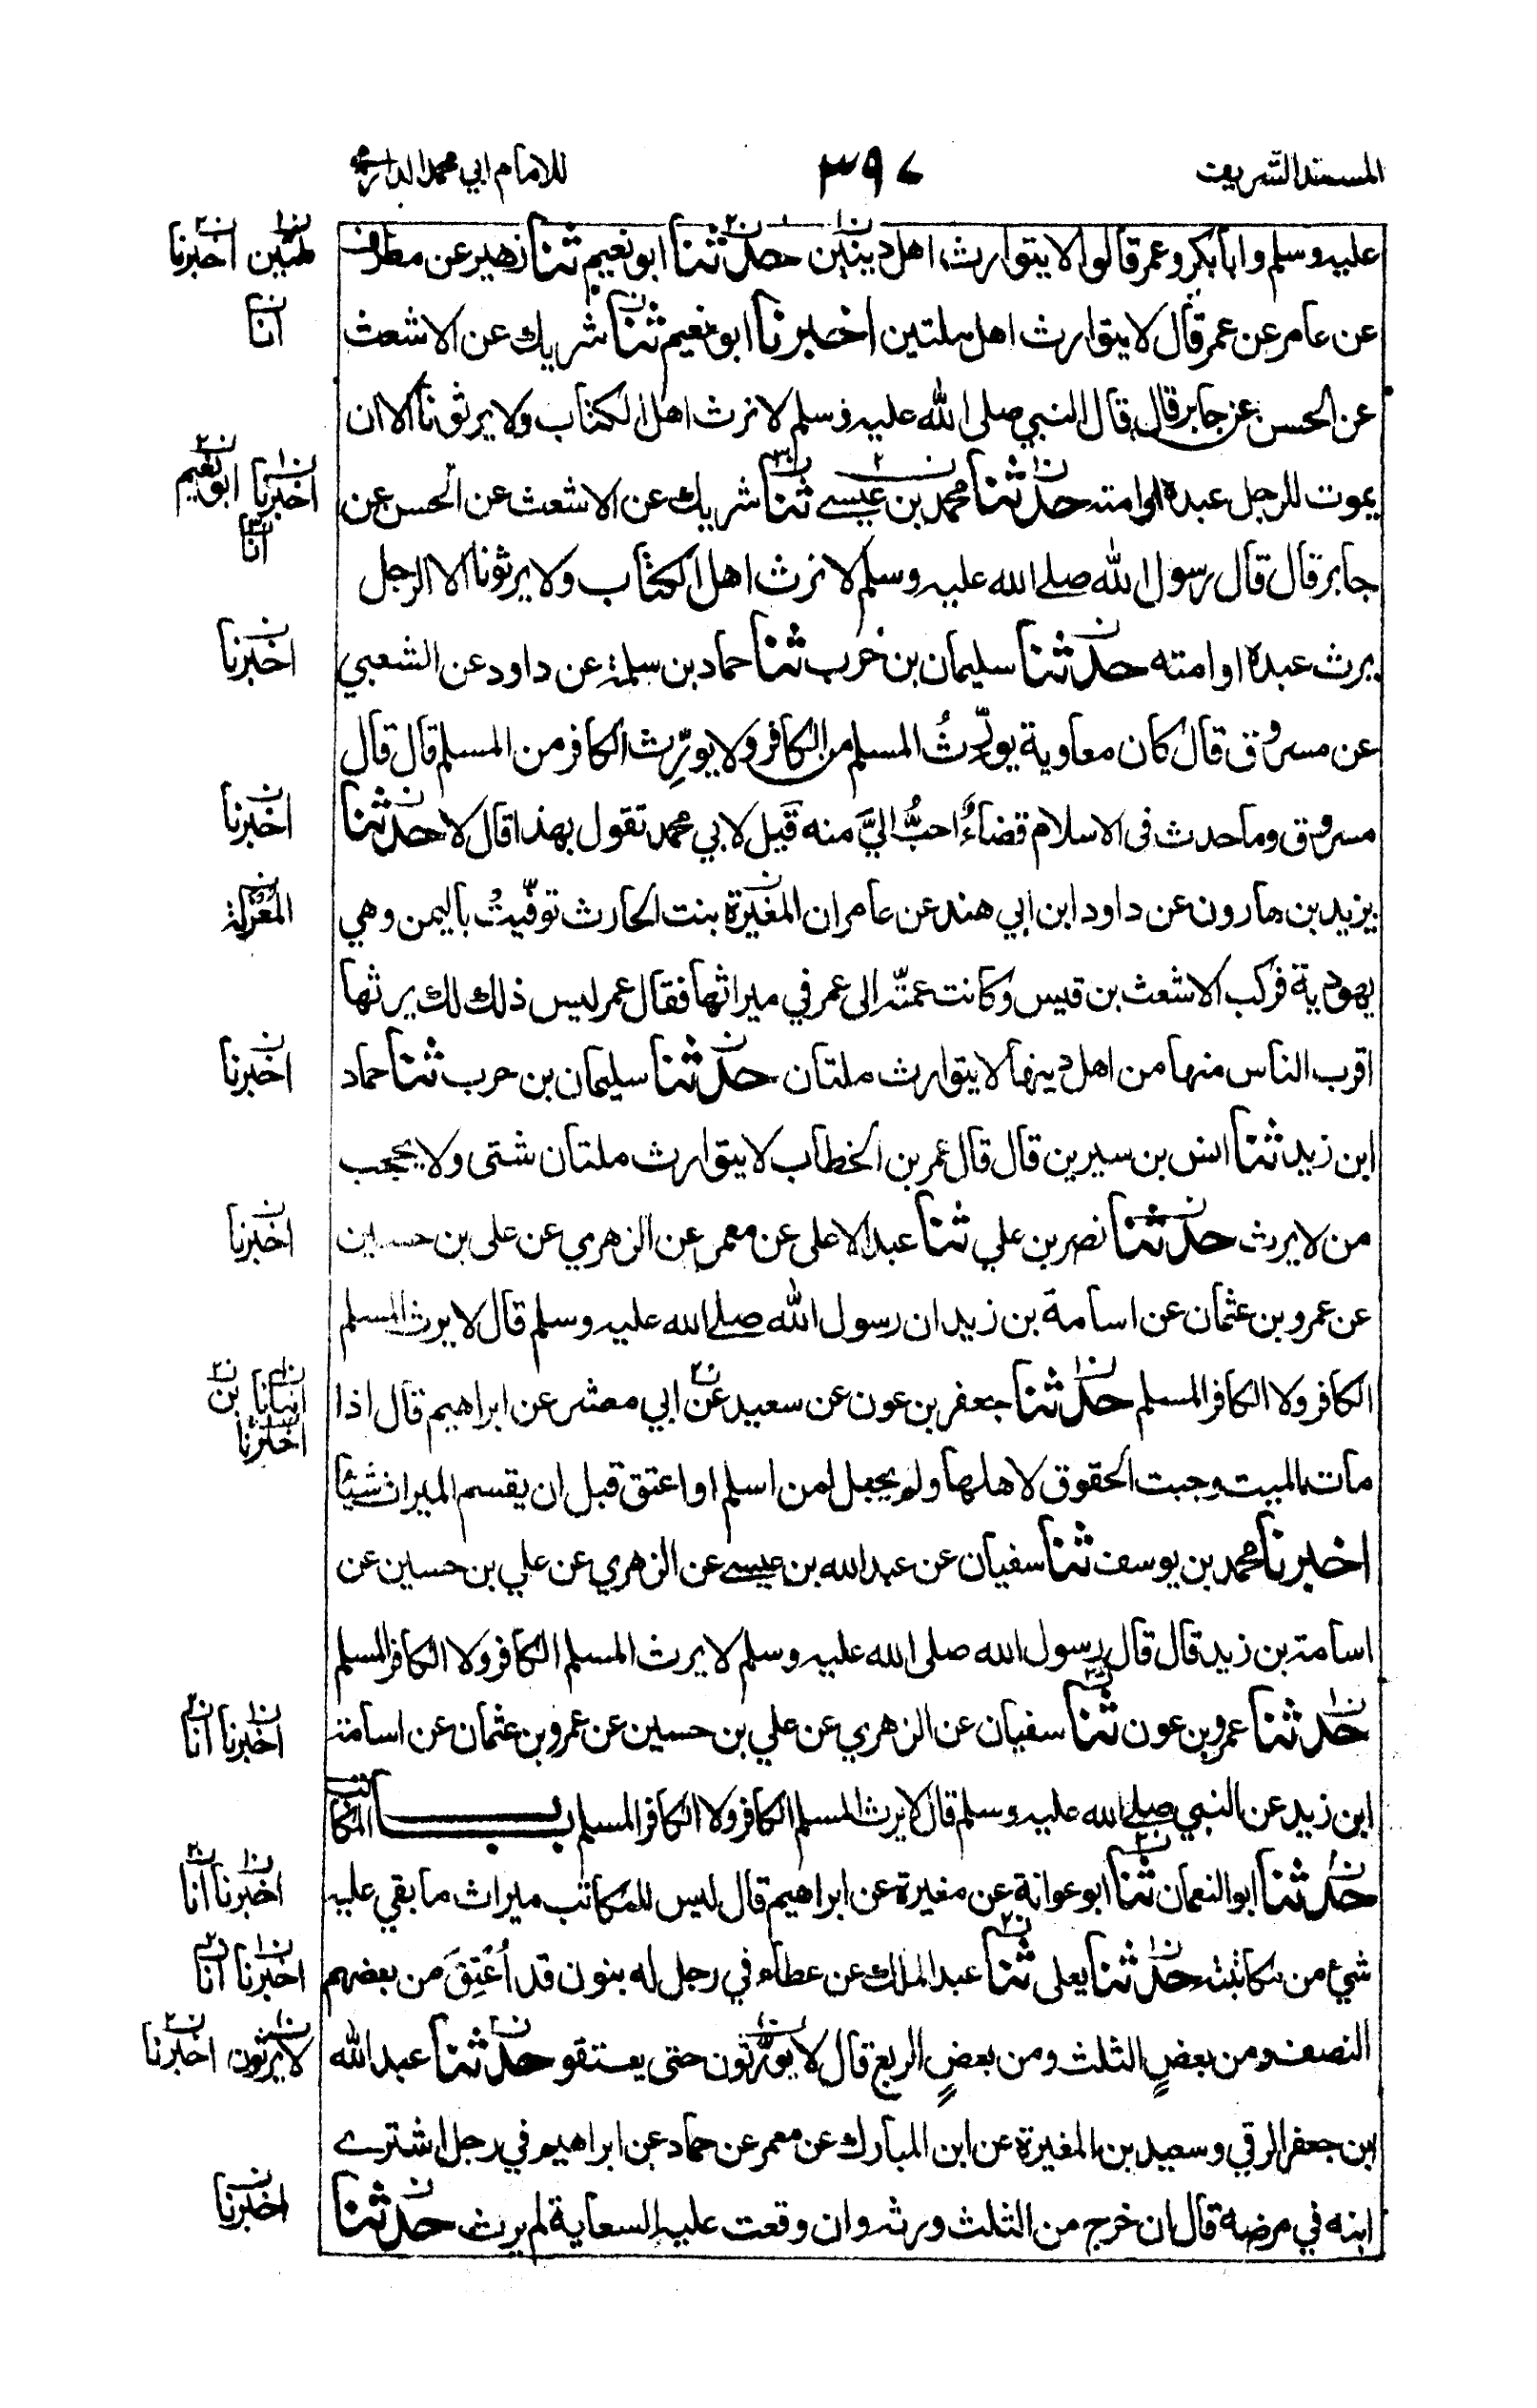 المسند الشريف ٣٩٧ للامام ابي محمد الدارمي
عليه وسلم وابا بكر وعمر قالوا لا يتوارث اهل دينين حدثنا ابو نعيم ثنا زهير عن مطرف
لملتين اخبرنا
عن عامر عن عمر قال لا يتوارث اهل ملتين اخبرنا ابو نعيم ثنا شريك عن الاشعث
انا
عن الحسن عن جابر قال قال النبي صلى الله عليه وسلم لا نرث اهل الكتاب ولا يرثونا الا ان
يموت للرجل عبده او امته حدثنا محمد بن عيسے ثنا شريك عن الاشعث عن الحسن عن
اخبرنا ابو نعيم
انا
جابر قال قال رسول الله صلے الله عليه وسلم لا نرث اهل الكتاب ولا يرثونا الا الرجل
يرث عبده او امته حدثنا سليمان بن حرب ثنا حماد بن سلمة عن داود عن الشعبي
اخبرنا
عن مسروق قال كان معاوية يورّثُ المسلم من الكافر ولا يورّث الكافر من المسلم قال قال
مسروق وما حدث فى الاسلام قضاءٌ احبُّ اليَّ منه قيل لابي محمد تقول بهذا قال لا حدثنا
اخبرنا
يزيد بن هارون عن داود ابن ابي هند عن عامر ان المغيرة بنت الحارث توفّيتْ باليمن وهي
المعزلة
يهودية فركب الاشعث بن قيس وكانت عمته الى عمر في ميراثها فقال عمر ليس ذلك لك يرثها
اقرب الناس منها من اهل دينها لا يتوارث ملتان حدثنا سليمان بن حرب ثنا حماد
اخبرنا
ابن زيد ثنا انس بن سيرين قال قال عمر بن الخطاب لا يتوارث ملتان شتى ولا يحجب
من لا يرث حدثنا نصر بن علي ثنا عبد الاعلى عن معمر عن الزهري عن على بن حسين
اخبرنا
عن عمرو بن عثمان عن اسامة بن زيد ان رسول الله صلے الله عليه وسلم قال لا يرث المسلم
الكافر ولا الكافر المسلم حدثنا جعفر بن عون عن سعيد عن ابي معشر عن ابراهيم قال اذا
انبانا بن
اخبرنا
مات الميت وجبت الحقوق لاهلها ولم يجعل لمن اسلم او اعتق قبل ان يقسم الميراث شيئا
اخبرنا محمد بن يوسف ثنا سفيان عن عبد الله بن عيسے عن الزهري عن علي بن حسين عن
اسامة بن زيد قال قال رسول الله صلى الله عليه وسلم لا يرث المسلم الكافر ولا الكافر المسلم
حدثنا عمرو بن عون ثنا سفيان عن الزهري عن علي بن حسين عن عمرو بن عثمان عن اسامة
اخبرنا انا
ابن زيد عن النبي صلے الله عليه وسلم قال لا يرث المسلم الكافر ولا الكافر المسلم باب المكاتب
حدثنا ابو النعمان ثنا ابو عوانة عن مغيرة عن ابراهيم قال ليس للمكاتب ميراث ما بقي عليه
اخبرنا انا
شيء من مكاتبته حدثنا يعلى ثنا عبد الملك عن عطاء في رجل له بنون قد اُعْتِقَ من بعضهم
اخبرنا انا
النصف ومن بعضٍ الثلث ومن بعضٍ الربع قال لا يورّثون حتى يعتقوا حدثنا عبد الله
لا يرثون اخبرنا
ابن جعفر الرقي وسعيد بن المغيرة عن ابن المبارك عن معمر عن حماد عن ابراهيم في رجل اشترے
ابنه في مرضه قال ان خرج من الثلث ورثه وان وقعت عليه السعاية لم يرث حدثنا
اخبرنا